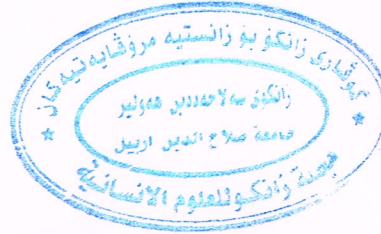 گوڤاری زانکۆ بۆ زانستیە مرۆڤایەتیەکان
زانکۆی سەلاحەددین هەولێر
جامعة صلاح الدين اربيل
مجلة زانكو للعلوم الانسانية